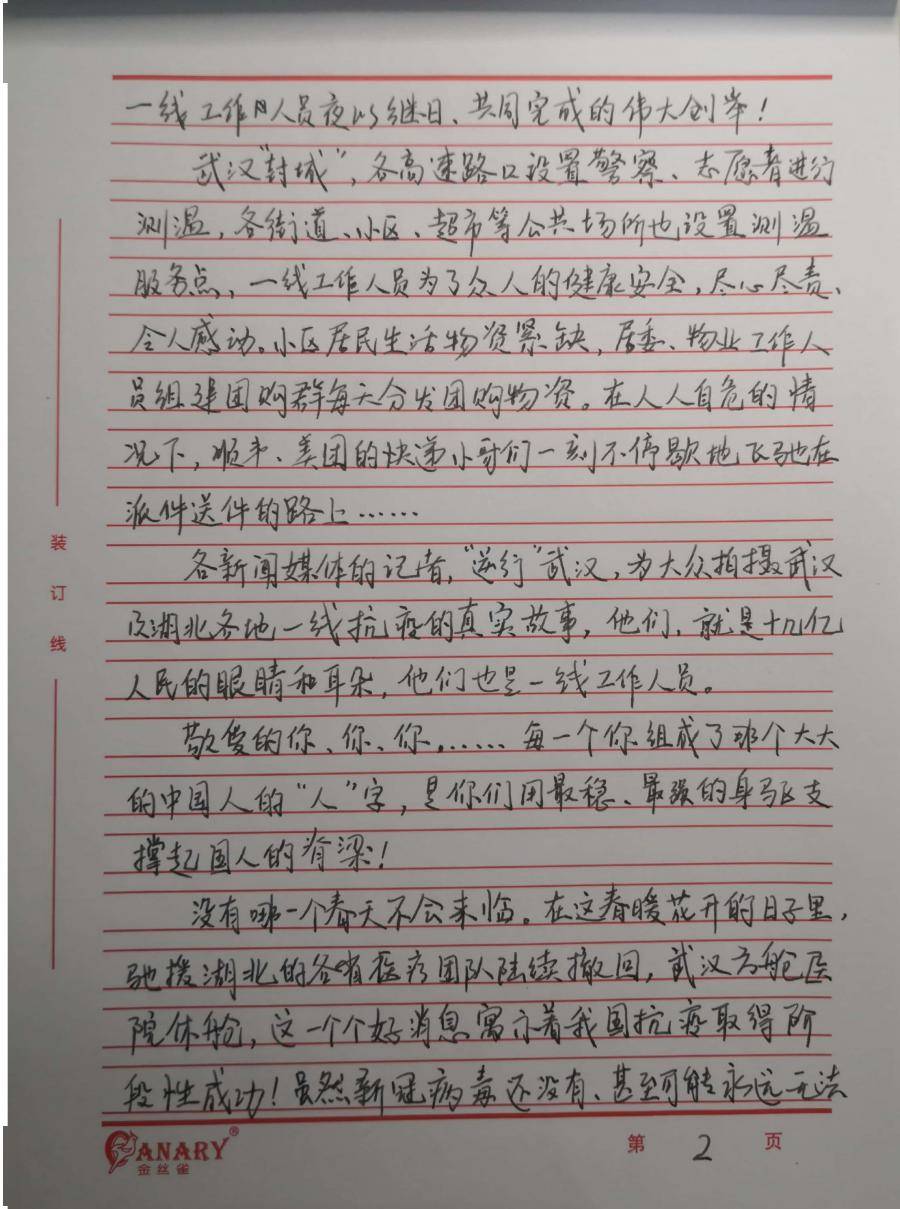 一线工作人员夜以继日、共同完成的伟大创举!
武汉"封城",各高速路口设置警察、志愿者进行
测温,各街道、小区、超市等公共场所也设置测温
服务点,一线工作人员为了众人的健康安全,尽心尽责、
令人感动。小区居民生活物资紧缺,居委、物业工作人
员组建团购群每天分发团购物资。在人人自危的情
况下,顺丰、美团的快递小哥们一刻不停歇地飞驰在
派件送件的路上……
各新闻媒体的记者,"逆行"武汉,为大众拍摄武汉
及湖北各地一线抗疫的真实故事,他们,就是十几亿
人民的眼睛和耳朵,他们也是一线工作人员。
敬爱的你、你、你……每一个你组成了那个大大
的中国人的"人"字,是你们用最稳、最强的身躯支
撑起国人的脊梁!
没有哪一个春天不会来临。在这春暖花开的日子里,
驰援湖北的各省医疗团队陆续撤回,武汉方舱医
院休舱,这一个个好消息寓示着我国抗疫取得阶
段性成功!虽然新冠病毒还没有、甚至可能永远无法
装
订
线
CANARY®
金丝雀
第 2 页